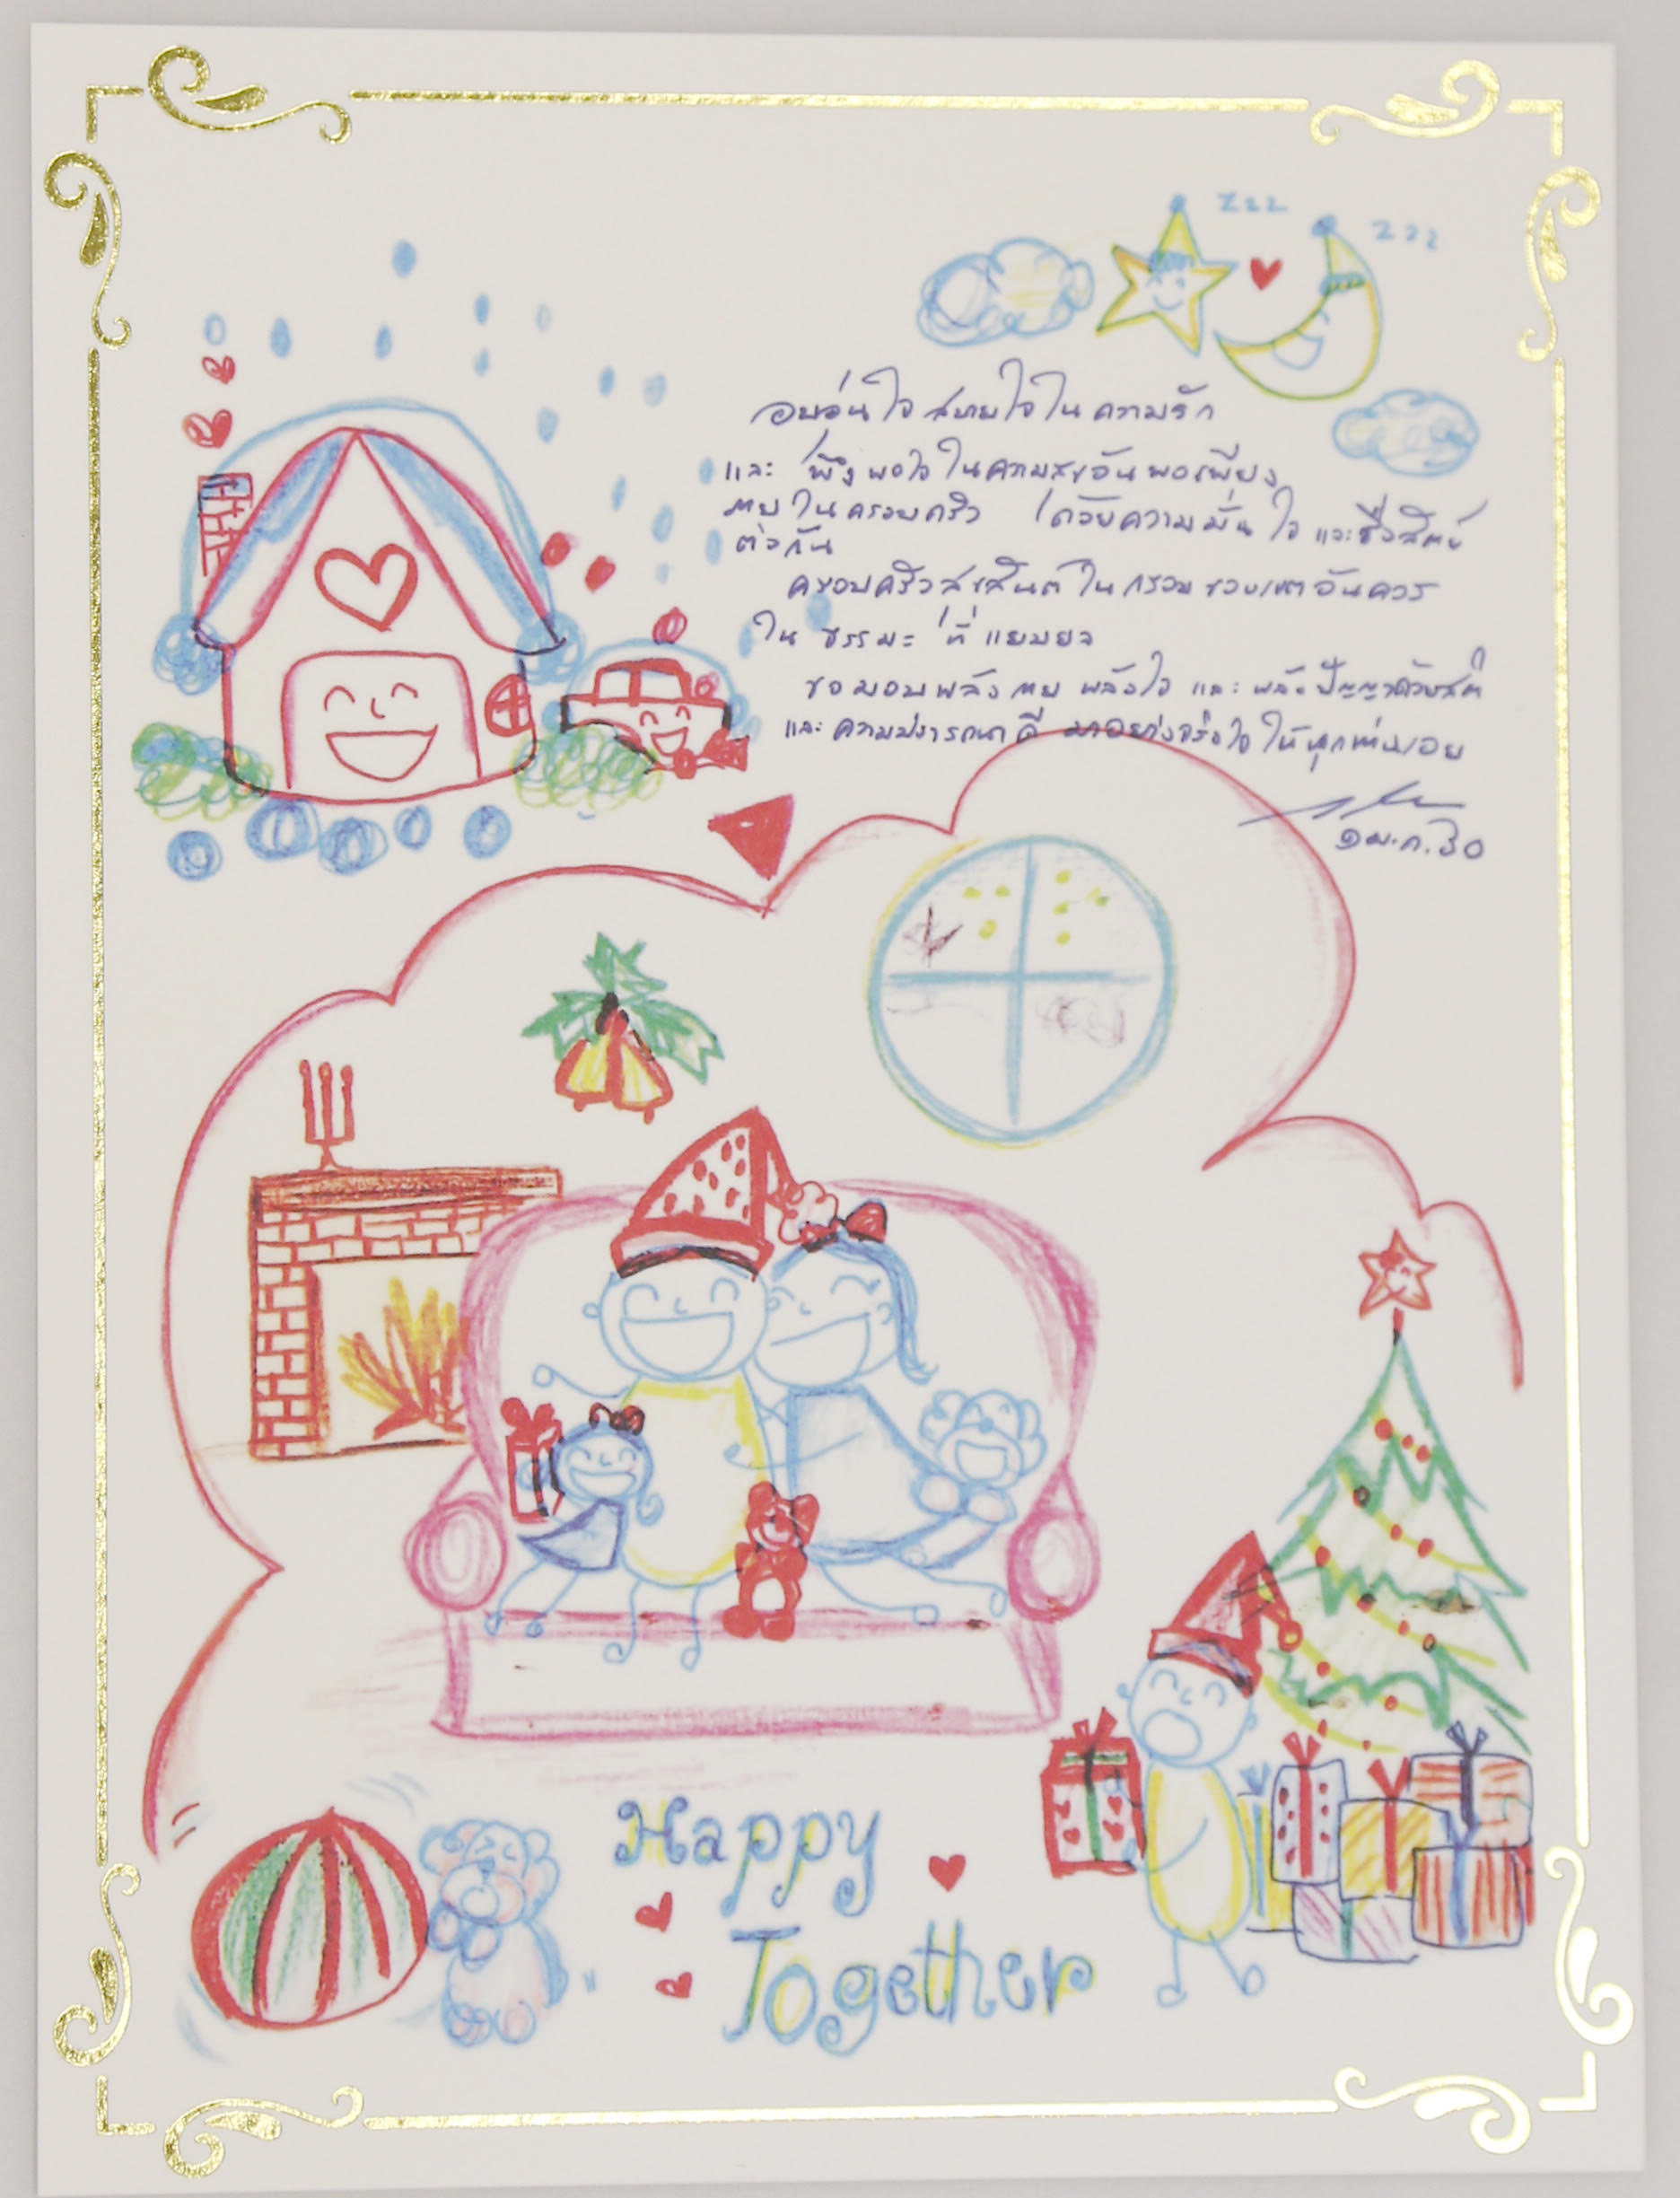 zzz
zzz
อบอุ่นใจ สบายใจ ในความรัก
และ พึงพอใจ ในความสุขอันพอเพียง
ภายในครอบครัว ด้วยความมั่นใจ และซื่อสัตย์
ต่อกัน
ครอบครัวสุขสันต์ ในกรอบขอบเขตอันควร
ใน ธรรมะ ที่ แยบยล
ขอมอบพลังกาย พลังใจ และ พลังปัญญาด้วยสติ
และ ความปรารถนาดี มาอย่างจริงใจ ให้ทุกท่านเอย
๑ ม.ค. ๖๐
Happy
Together